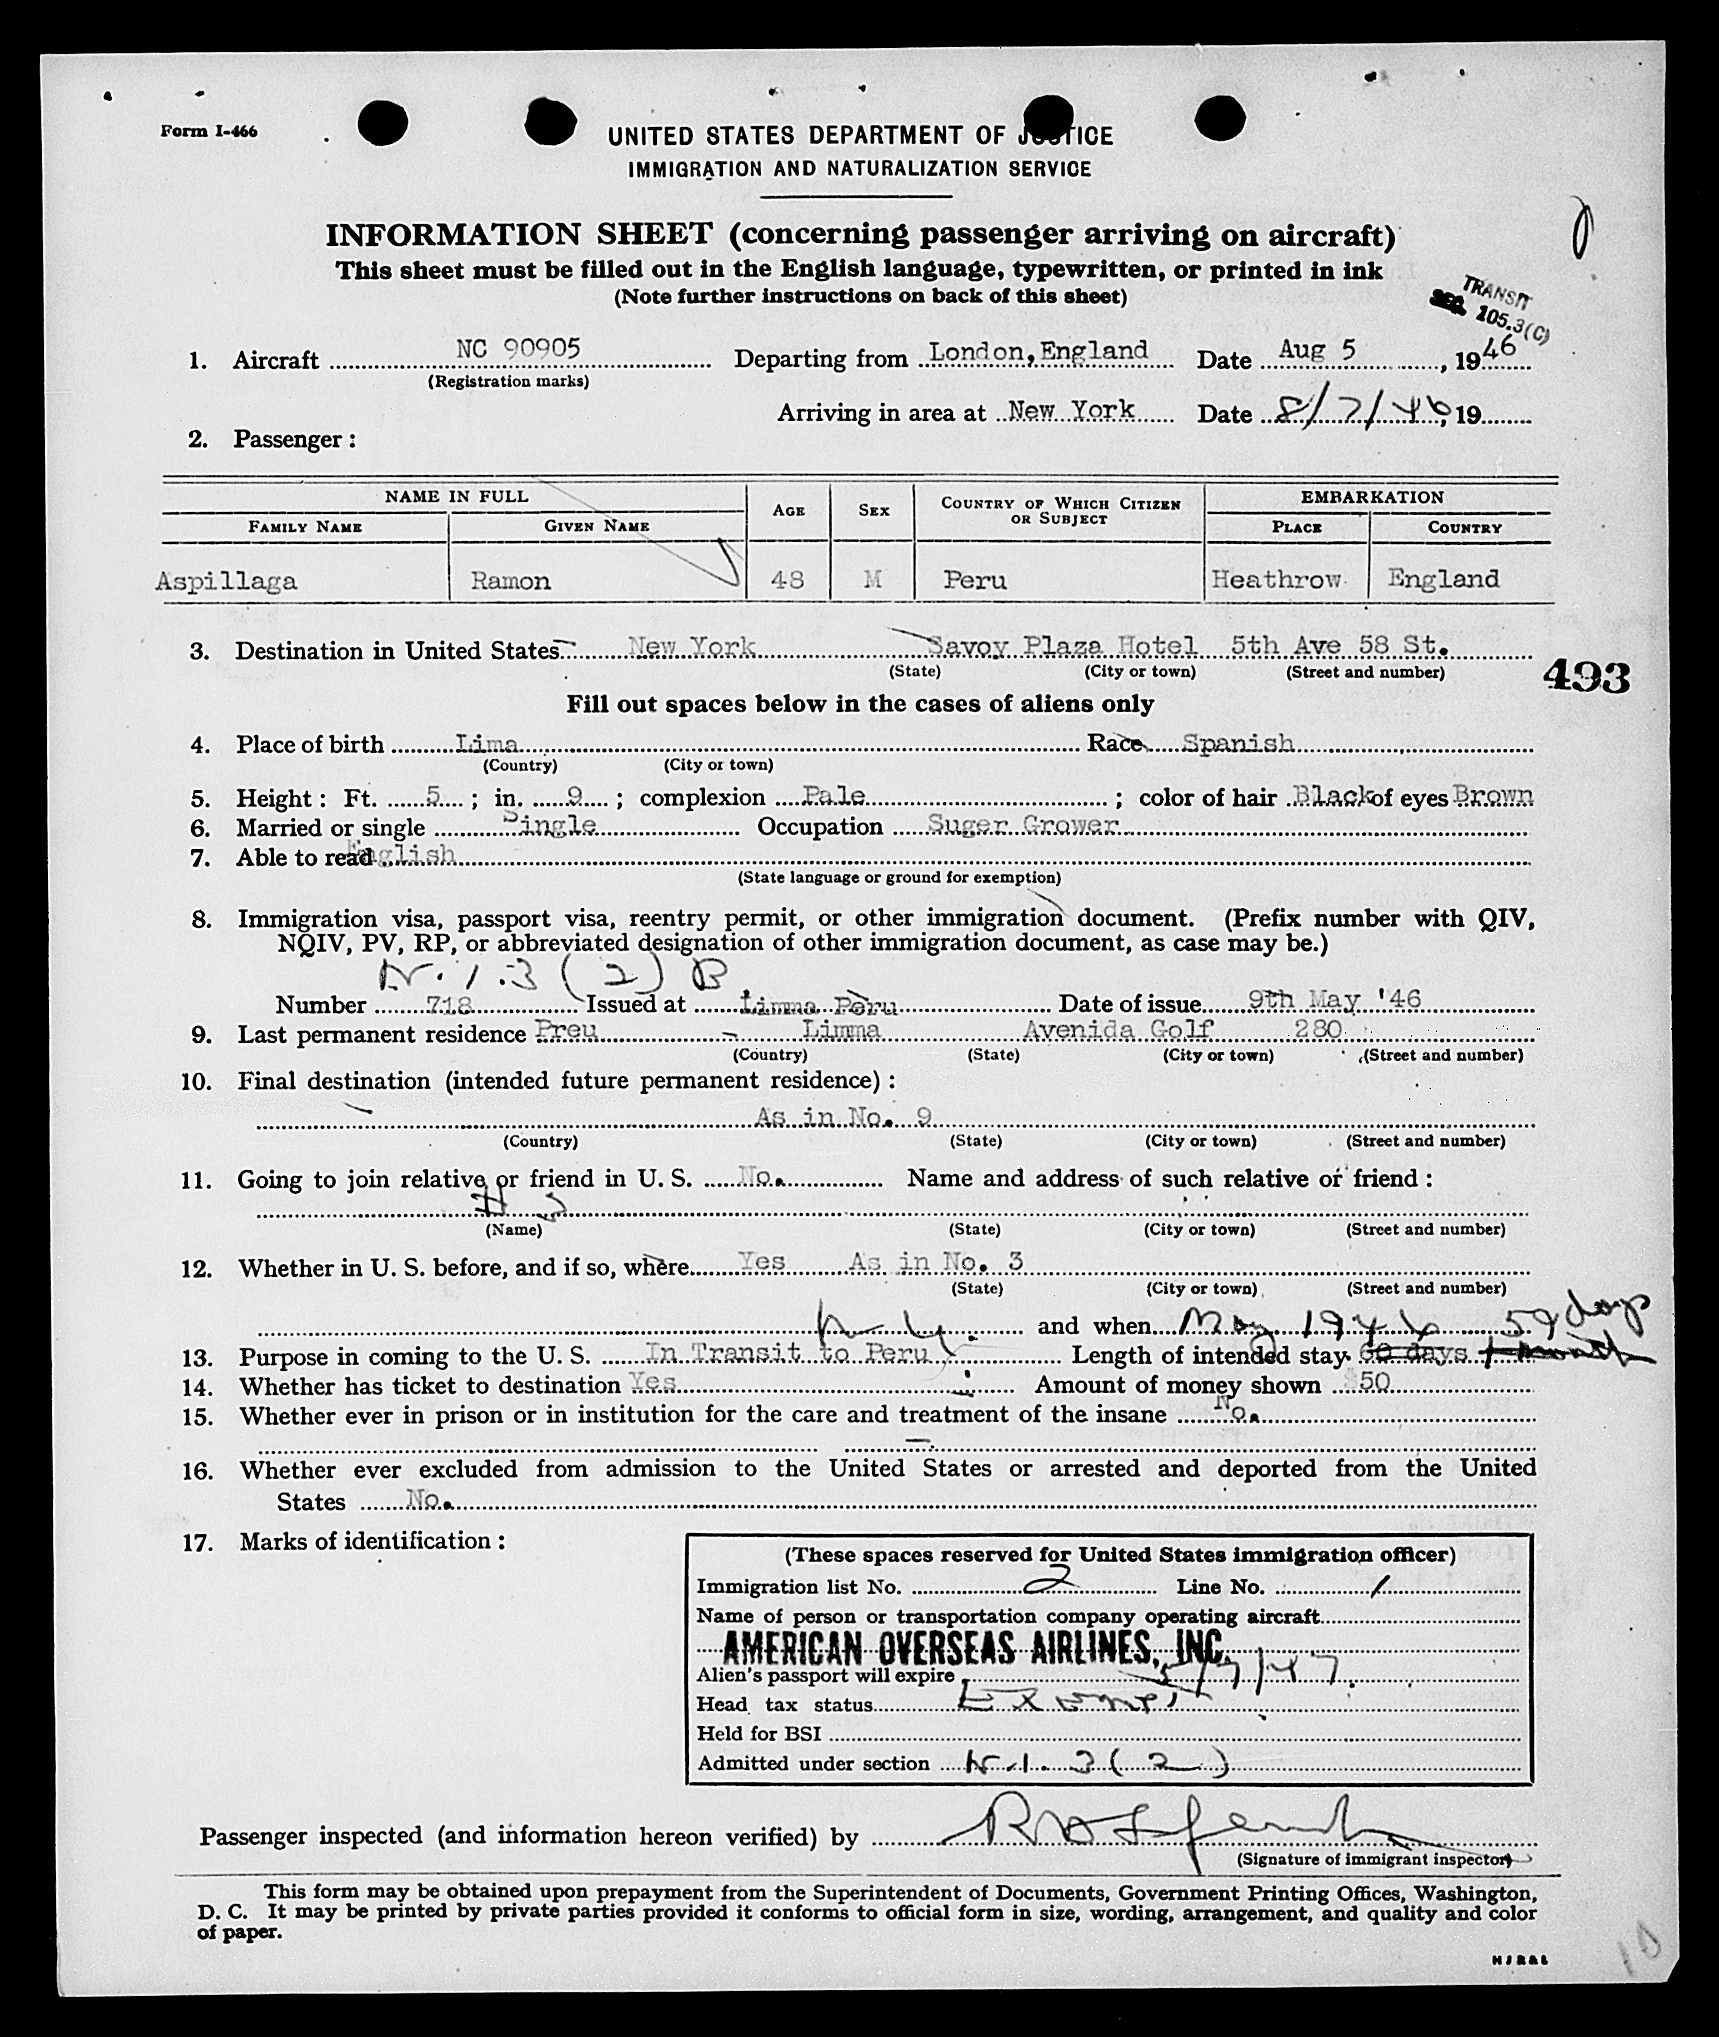 Form I-466
UNITED STATES DEPARTMENT OF JUSTICE
IMMIGRATION AND NATURALIZATION SERVICE
INFORMATION SHEET (concerning passenger arriving on aircraft)
This sheet must be filled out in the English language, typewritten, or printed in ink
(Note further instructions on back of this sheet)
TRANSIT
SEC. 105.3(C)
1. Aircraft NC 90905 Departing from London, England Date Aug 5, 1946
(Registration marks)
Arriving in area at New York Date 8/7/46, 19
2. Passenger:
NAME IN FULL AGE SEX COUNTRY OF WHICH CITIZEN OR SUBJECT EMBARKATION
FAMILY NAME GIVEN NAME PLACE COUNTRY
Aspillaga Ramon 48 M Peru Heathrow England
3. Destination in United States New York Savoy Plaza Hotel 5th Ave 58 St.
(State) (City or town) (Street and number)
493
Fill out spaces below in the cases of aliens only
4. Place of birth Lima Race Spanish
(Country) (City or town)
5. Height: Ft. 5; in. 9; complexion Pale; color of hair Black of eyes Brown
6. Married or single Single Occupation Suger Grower
7. Able to read English
(State language or ground for exemption)
8. Immigration visa, passport visa, reentry permit, or other immigration document. (Prefix number with QIV,
NQIV, PV, RP, or abbreviated designation of other immigration document, as case may be.)
1.3 (2) B
Number 718 Issued at Limma Peru Date of issue 9th May '46
9. Last permanent residence Preu Limma Avenida Golf 280
(Country) (State) (City or town) (Street and number)
10. Final destination (intended future permanent residence):
As in No. 9
(Country) (State) (City or town) (Street and number)
11. Going to join relative or friend in U. S. No. Name and address of such relative or friend:
# 3
(Name) (State) (City or town) (Street and number)
12. Whether in U. S. before, and if so, where Yes As in No. 3
(State) (City or town) (Street and number)
N.Y. and when May 1946 59 days
13. Purpose in coming to the U. S. In Transit to Peru Length of intended stay 60 days 1 month
14. Whether has ticket to destination Yes Amount of money shown $50
15. Whether ever in prison or in institution for the care and treatment of the insane No.
16. Whether ever excluded from admission to the United States or arrested and deported from the United
States No.
17. Marks of identification:
(These spaces reserved for United States immigration officer)
Immigration list No. 2 Line No. 1
Name of person or transportation company operating aircraft
AMERICAN OVERSEAS AIRLINES, INC.
Alien's passport will expire 5/7/47
Head tax status Exempt
Held for BSI
Admitted under section 1.3(2)
Passenger inspected (and information hereon verified) by
(Signature of immigrant inspector)
This form may be obtained upon prepayment from the Superintendent of Documents, Government Printing Offices, Washington,
D. C. It may be printed by private parties provided it conforms to official form in size, wording, arrangement, and quality and color
of paper.
10